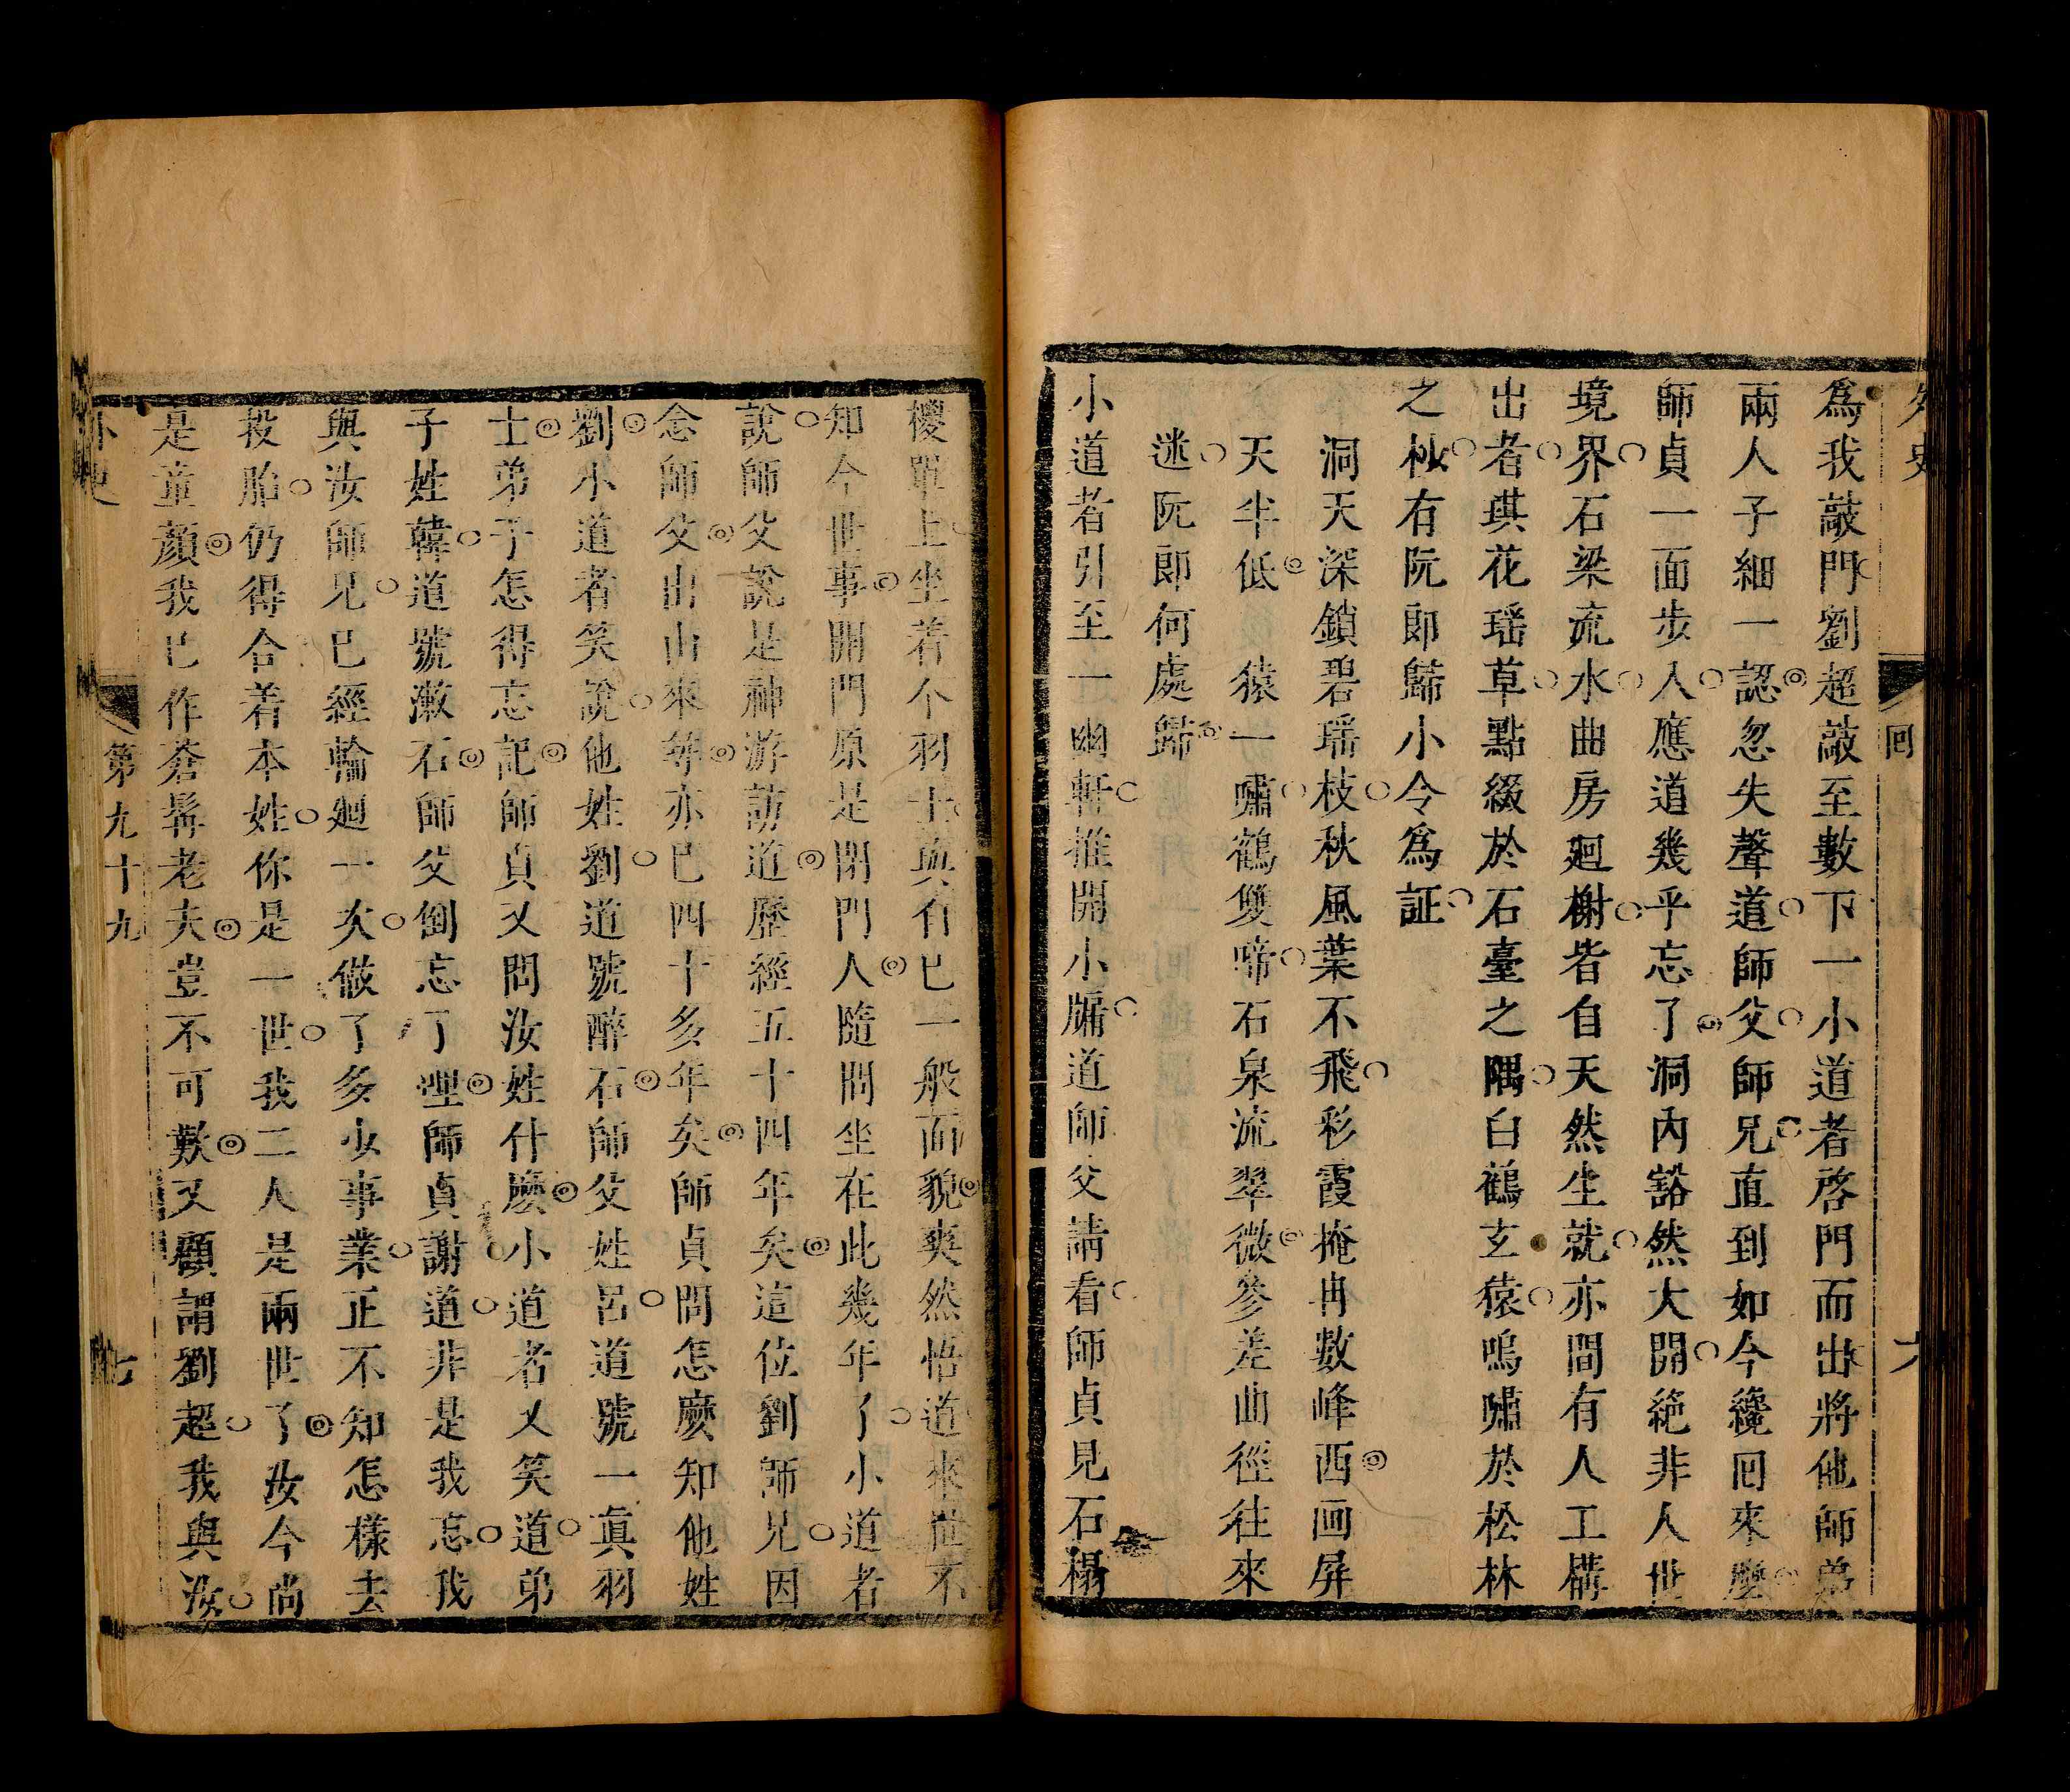 外史
回
六
爲我敲門劉超敲至數下一小道者啓門而出將他師弟
兩人子細一認忽失聲道師父師兄直到如今纔囘來麼
師貞一面步入應道幾乎忘了洞內豁然大開絶非人世
境界石梁流水曲房廻榭皆自天然生就亦間有人工構
出者琪花瑶草點綴於石臺之隅白鶴玄猿鳴嘯於松林
之杪有阮郎歸小令爲証
洞天深鎖碧瑶枝秋風葉不飛彩霞掩冉數峰西画屏
天半低猿一嘯鶴雙啼石泉流翠微參差曲徑往來
迷阮郎何處歸
小道者引至一幽軒推開小牖道師父請看師貞見石榻
椶單上坐着个羽士與有已一般面貌爽然悟道來世不
知今世事開門原是閉門人隨問坐在此幾年了小道者
說師父說是神游訪道歷經五十四年矣這位劉師兄因
念師父出山來尋亦已四十多年矣師貞問怎麽知他姓
劉小道者笑說他姓劉道號醉石師父姓呂道號一眞羽
士弟子怎得忘記師貞又問汝姓什麽小道者又笑道弟
子姓韓道號漱石師父倒忘了哩師貞謝道非是我忘我
與汝師兄已經輪廻一次做了多少事業正不知怎樣去
投胎仍得合着本姓你是一世我二人是兩世了汝今尚
是童顏我已作蒼髯老夫豈不可歎又顧謂劉超我與汝
外史
第九十九
七